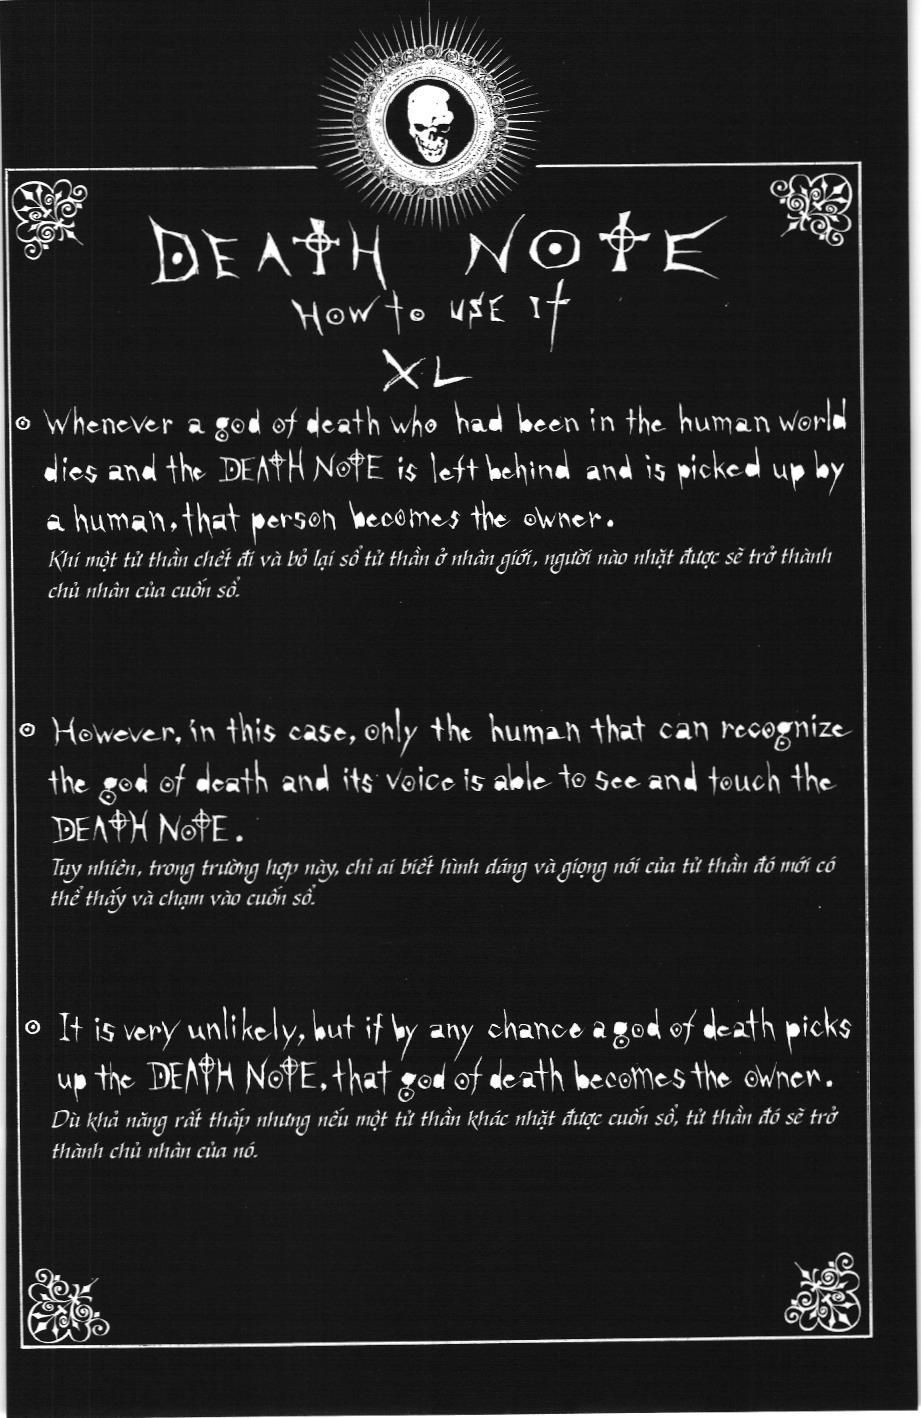 DEATH NOTE
How to use it
XL
Whenever a god of death who had been in the human world
dies and the DEATH NOTE is left behind and is picked up by
a human, that person becomes the owner.
Khi một tử thần chết đi và bỏ lại sổ tử thần ở nhân giới, người nào nhặt được sẽ trở thành
chủ nhân của cuốn sổ.
However, in this case, only the human that can recognize
the god of death and its voice is able to see and touch the
DEATH NOTE.
Tuy nhiên, trong trường hợp này, chỉ ai biết hình dáng và giọng nói của tử thần đó mới có
thể thấy và chạm vào cuốn sổ.
It is very unlikely, but if by any chance a god of death picks
up the DEATH NOTE, that god of death becomes the owner.
Dù khả năng rất thấp nhưng nếu một tử thần khác nhặt được cuốn sổ, tử thần đó sẽ trở
thành chủ nhân của nó.